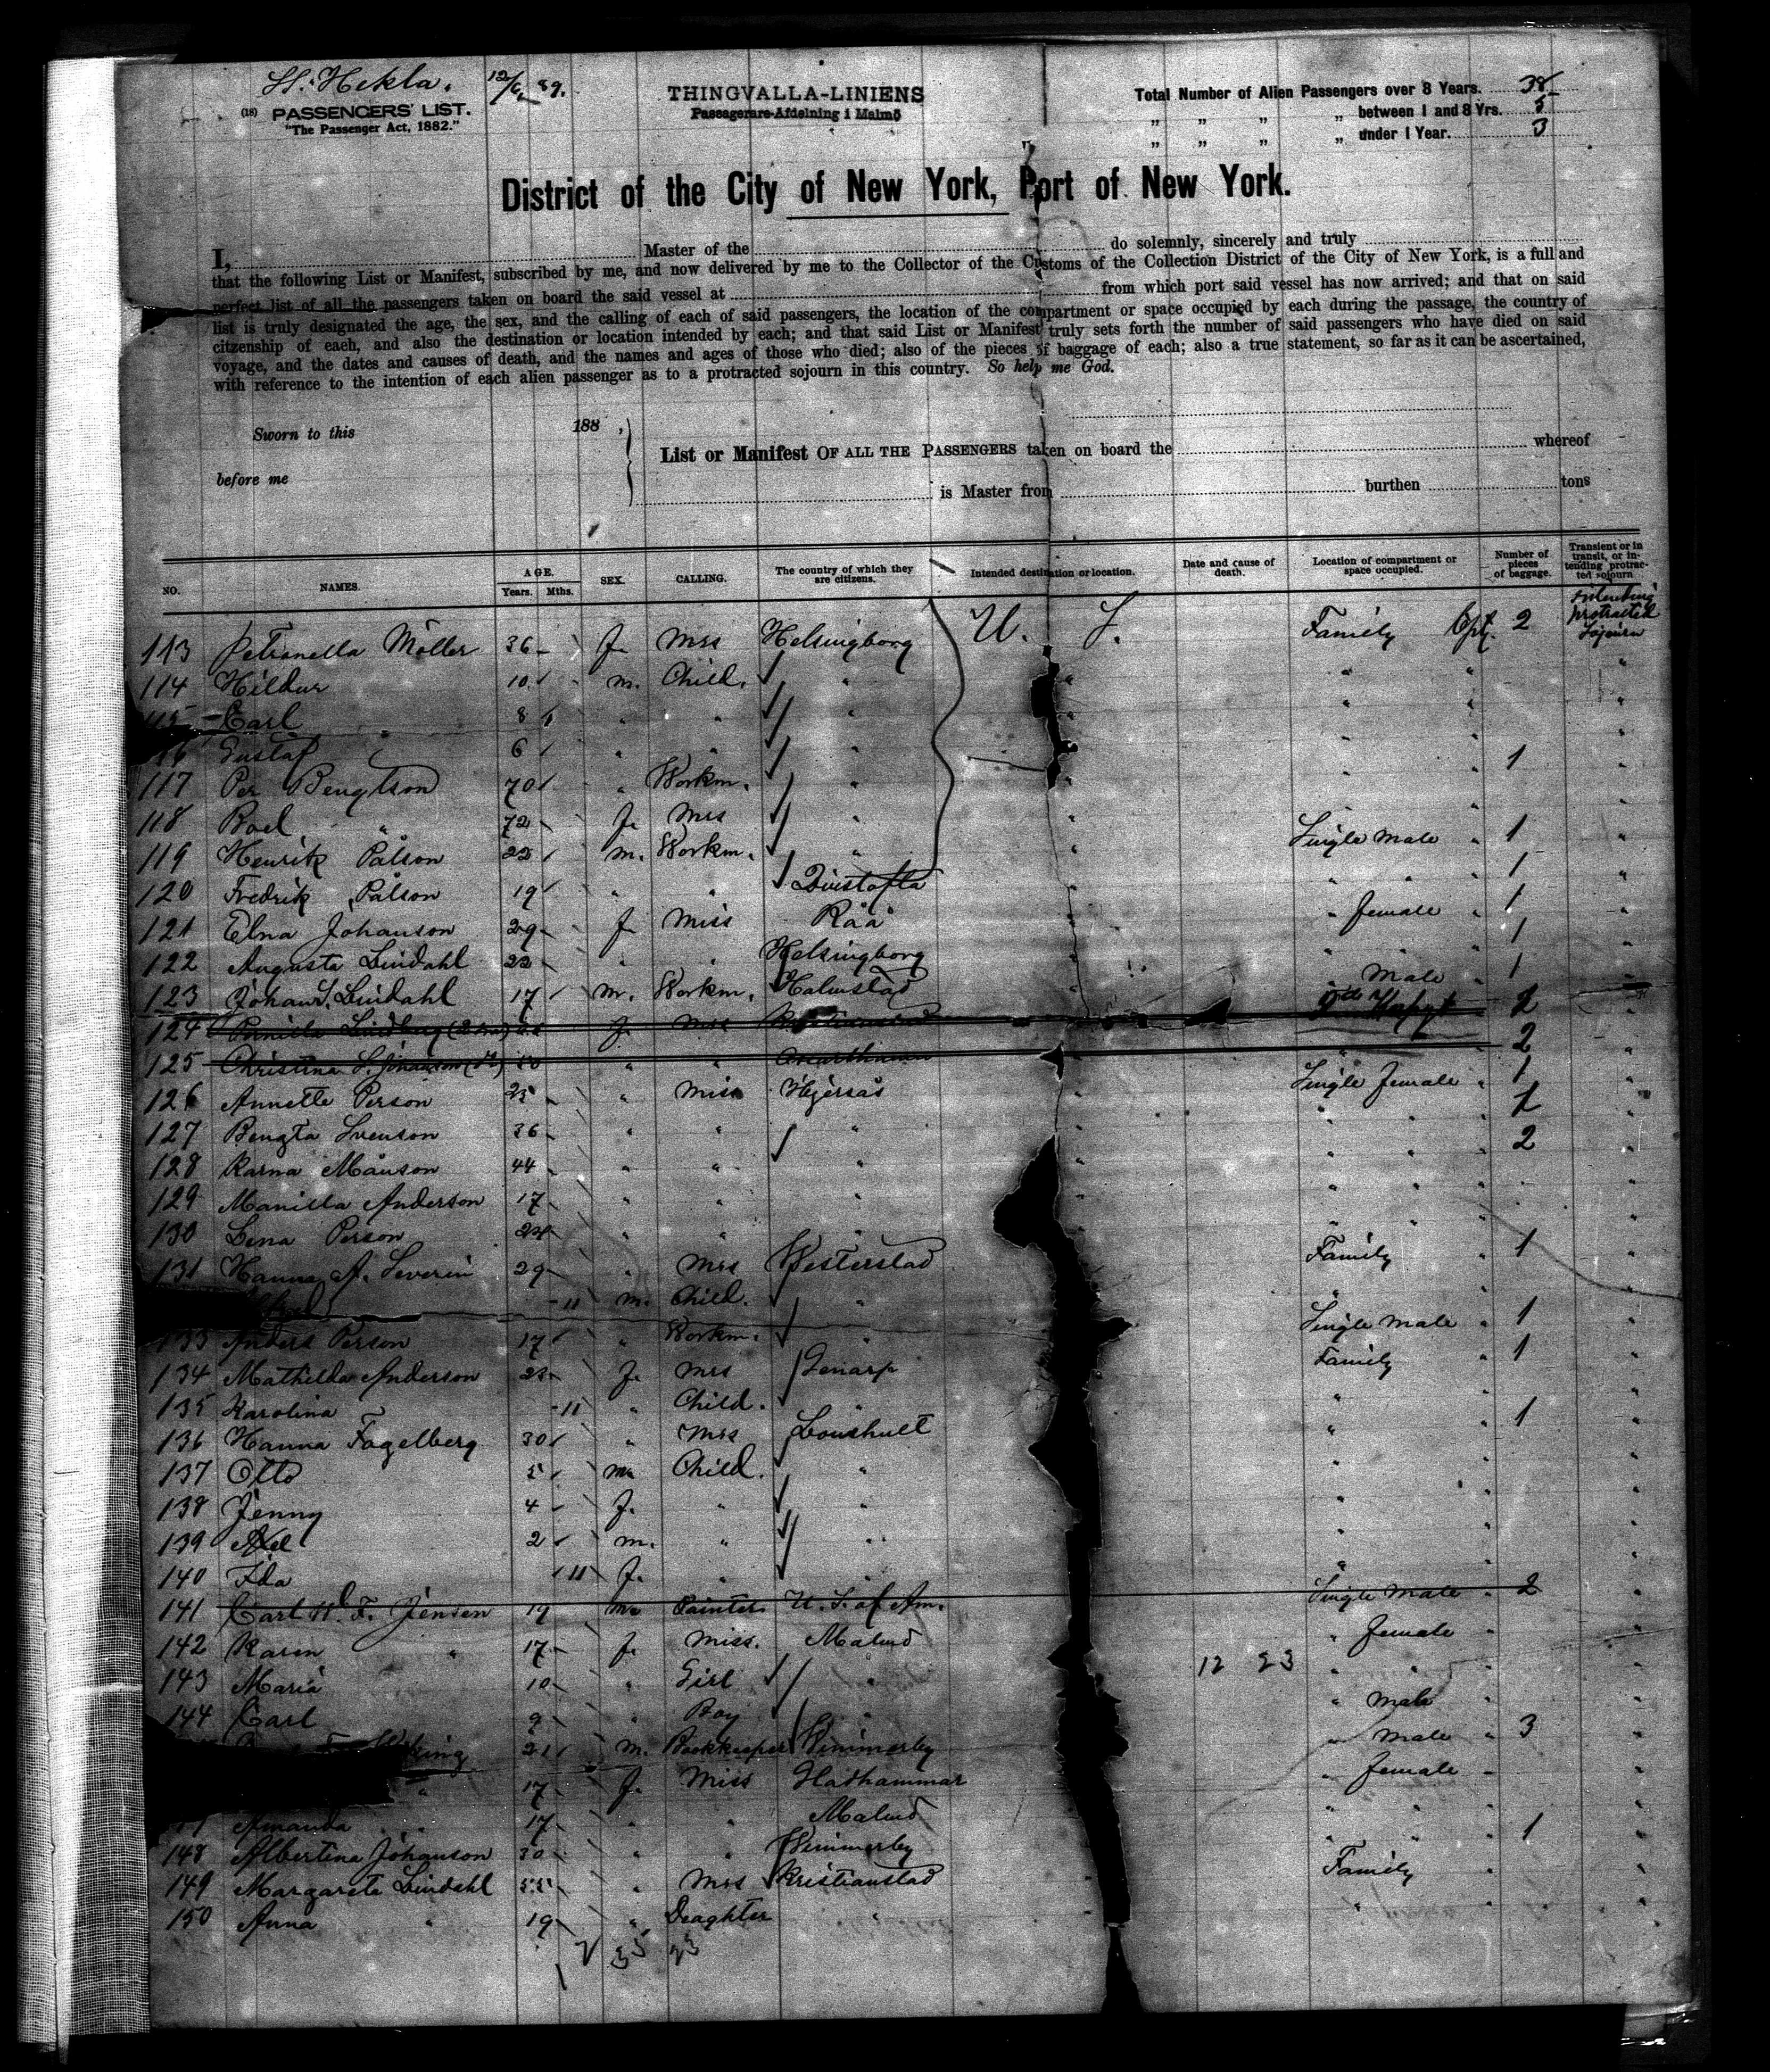 SS. Hekla. 12/6 89.
(18) PASSENGERS' LIST.
"The Passenger Act, 1882."
THINGVALLA-LINIENS
Passagerare-Afdelning i Malmö
Total Number of Alien Passengers over 8 Years. 38
„ „ „ „ between 1 and 8 Yrs. 5
„ „ „ „ under 1 Year. 3
District of the City of New York, Port of New York.
I, Master of the do solemnly, sincerely and truly
that the following List or Manifest, subscribed by me, and now delivered by me to the Collector of the Customs of the Collection District of the City of New York, is a full and
perfect list of all the passengers taken on board the said vessel at from which port said vessel has now arrived; and that on said
list is truly designated the age, the sex, and the calling of each of said passengers, the location of the compartment or space occupied by each during the passage, the country of
citzenship of each, and also the destination or location intended by each; and that said List or Manifest truly sets forth the number of said passengers who have died on said
voyage, and the dates and causes of death, and the names and ages of those who died; also of the pieces of baggage of each; also a true statement, so far as it can be ascertained,
with reference to the intention of each alien passenger as to a protracted sojourn in this country. So help me God.
Sworn to this 188 ,
before me
List or Manifest OF ALL THE PASSENGERS taken on board the whereof
is Master from burthen tons
NO. NAMES. AGE. Years. Mths. SEX. CALLING. The country of which they are citizens. Intended destination or location. Date and cause of death. Location of compartment or space occupied. Number of pieces of baggage. Transient or in transit, or intending protracted sojourn
113 Petronella Möller 36 f. Mrs Helsingborg U. S. Family Cpt. 2 Intending protracted Sojourn
114 Hildur 10 m. Child. "
115 Carl 8 " " "
116 Gustaf 6 " " "
117 Per Bengtson 70 " Workm. " 1
118 Boel " 72 f. Mrs "
119 Henrik Pålson 22 m. Workm. " Single male " 1
120 Fredrik Pålson 19 " " Qvistofta " " " 1
121 Elna Johanson 29 f. Miss Råå " female " 1
122 Augusta Lindahl 22 " " Helsingborg " " " 1
123 Johan S. Lindahl 17 m. Workm. Halmstad " male " 1
124 Pernilla Lindberg f. Mrs 2
125 Christina S. Johanson 50 " " 2
126 Annette Person 25 " Miss Hjersås Single female " 1
127 Bengta Svenson 36 " " " " " " 1
128 Karna Månson 44 " " " " " " 2
129 Manilla Anderson 17 " " "
130 Lena Person 24 " " "
131 Hanna A. Severin 29 " Mrs Westerstad Family " 1
11 m. Child. "
133 Anders Person 17 " Workm. " Single male " 1
134 Mathilda Anderson 23 f. Mrs Genarp Family " 1
135 Karolina 11 " Child. "
136 Hanna Fagelberg 30 " Mrs Loushult " 1
137 Otto 5 m. Child. "
138 Jenny 4 f. " "
139 Axel 2 m. " "
140 Ida 11 f. " "
141 Carl W. F. Jensen 19 m. Painter U. S. of Am. Single male " 2
142 Karen " 17 f. Miss. Malmö " female "
143 Maria 10 " Girl " 12 23 " " "
144 Carl 9 " Boy " " male "
21 m. Bookkeeper Wimmerby " male " 3
" 17 f. Miss Hathammar " female "
Amanda " 17 " " Malmö " "
148 Albertina Johanson 30 " " Wimmerby " " " 1
149 Margareta Lindahl 55 " Mrs Kristianstad Family "
150 Anna " 19 " Deaghter " "
35 23